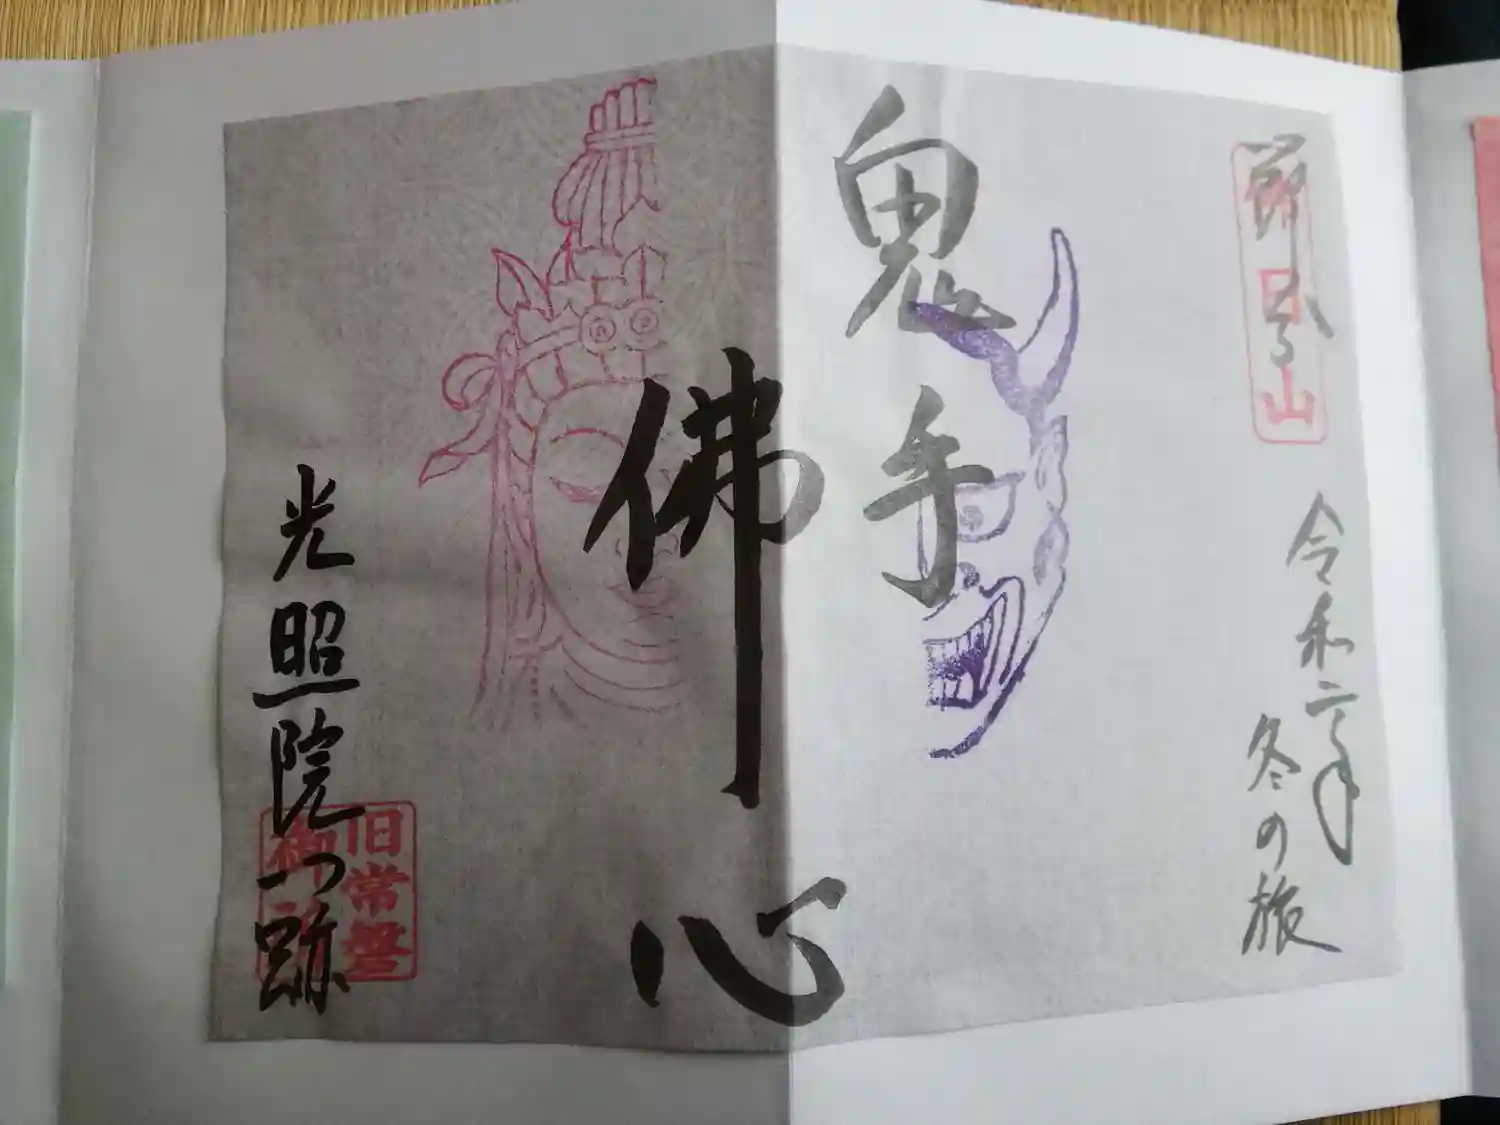 令和二年
冬の旅
鬼手
佛心
光照院門跡
旧常盤
御所